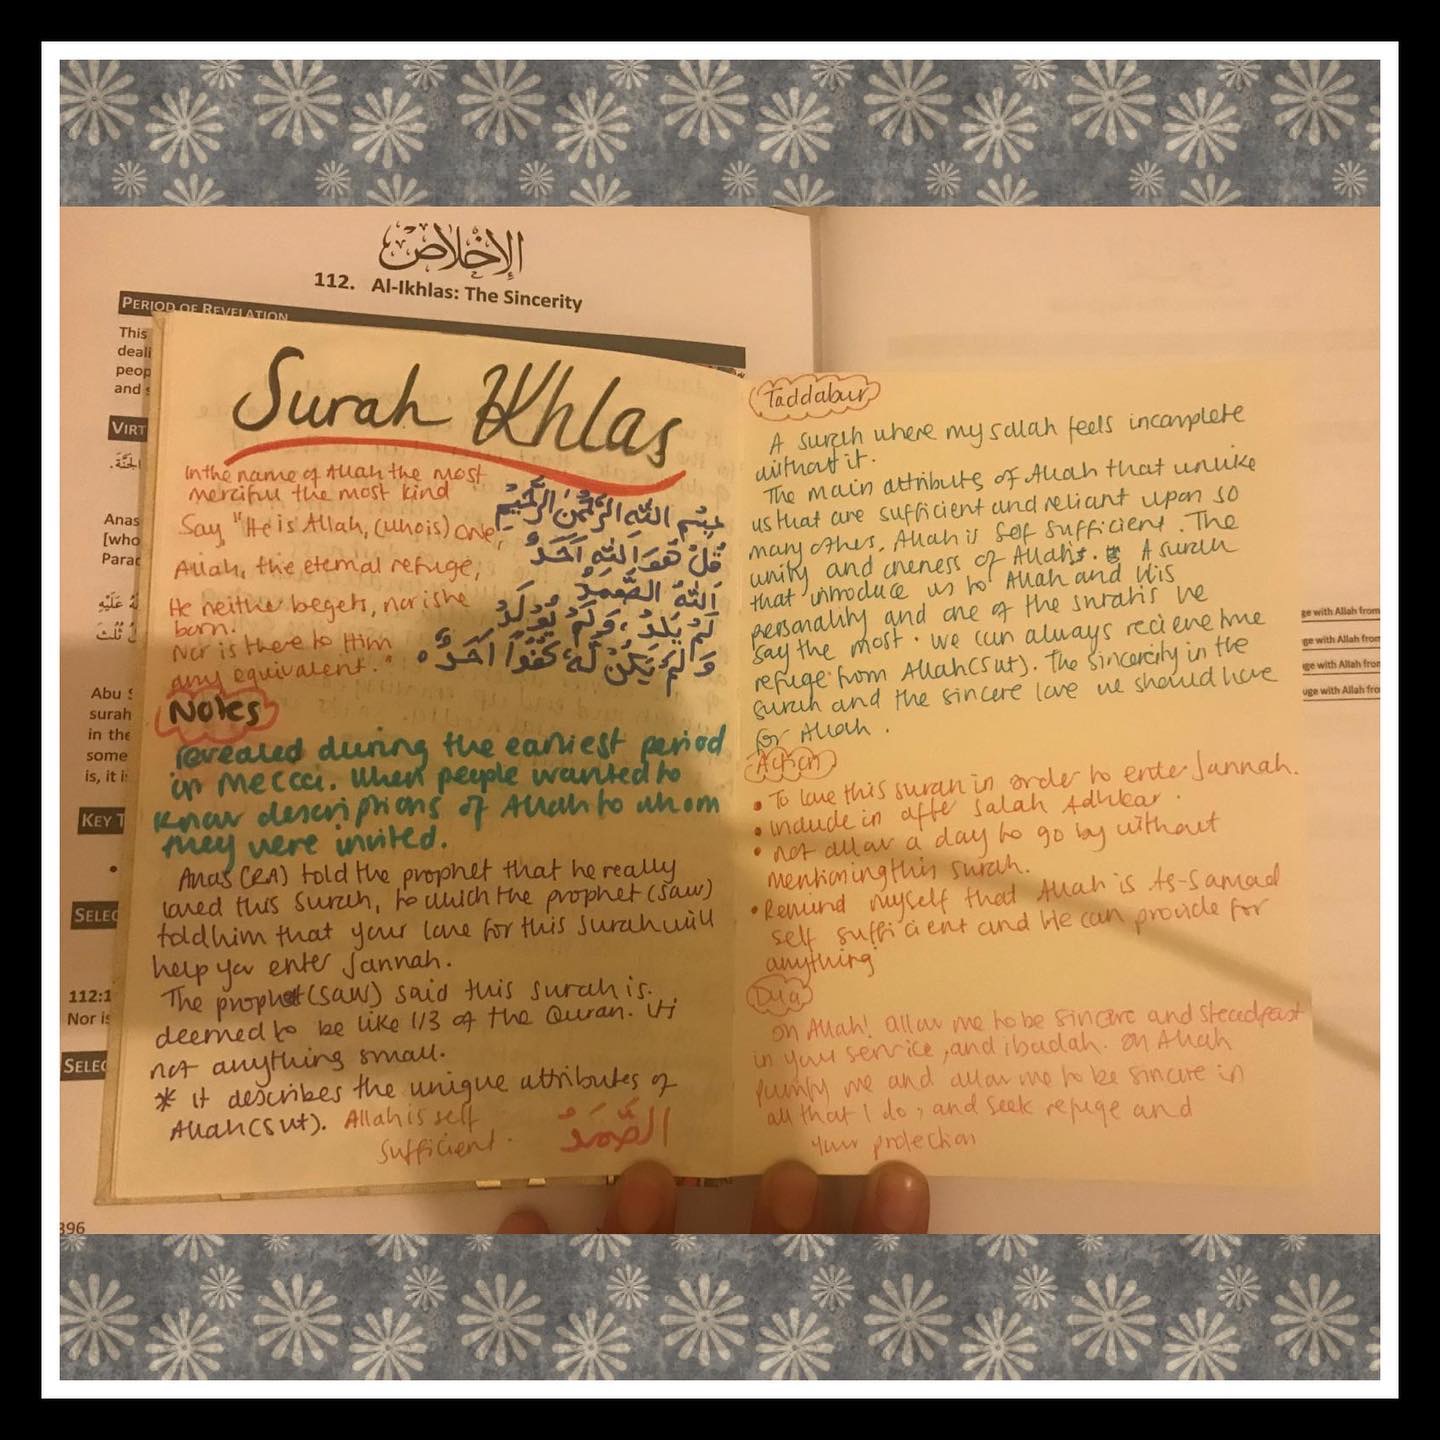 الإخلاص
112. Al-Ikhlas: The Sincerity
PERIOD OF REVELATION
This
deali
peop
and s
VIRT
الجنّة.
Anas
[who
Parad
عَلَيْهِ
ثُلُثَ
Abu S
surah
in the
some
is, it i
KEY T
SELEC
112:1
Nor is
SELEC
396
Surah Ikhlas
In the name of Allah the most
merciful the most kind
Say "He is Allah, (who is) One,
Allah, the eternal refuge,
He neither begets, nor is he
born.
Nor is there to Him
any equivalent."
بِسْمِ اللَّهِ الرَّحْمَٰنِ الرَّحِيْمِ
قُلْ هُوَ اللَّهُ أَحَدٌ
اَللَّهُ الصَّمَدُ
لَمْ يَلِدْ، وَلَمْ يُوْلَدْ
وَلَمْ يَكُنْ لَهُ كُفُوًا أَحَدٌ
Notes
revealed during the earliest period
in Mecca. When people wanted to
know descriptions of Allah to whom
they were invited.
Anas (RA) told the prophet that he really
loved this Surah, to which the prophet (saw)
told him that your love for this surah will
help you enter Jannah.
The prophet (saw) said this surah is
deemed to be like 1/3 of the Quran. it's
not anything small.
* it describes the unique attributes of
Allah (swt). Allah is self
sufficient.
الصَّمَدُ
Taddabur
A surah where my salah feels incomplete
without it.
The main attributes of Allah that unlike
us that are sufficient and reliant upon so
many others, Allah is self sufficient. The
unity and oneness of Allah. A surah
that introduce us to Allah and His
personality and one of the surahs we
say the most. we can always recieve true
refuge from Allah (swt). The sincereity in the
surah and the sincere love we should have
for Allah.
Action
• To love this surah in order to enter Jannah.
• Include in after Salah Adhkar.
• not allow a day to go by without
mentioning this surah.
• Remind myself that Allah is As-Samad
self sufficient and He can provide for
anything
Dua
Oh Allah! allow me to be sincere and steadfast
in your service, and ibadah. Oh Allah
purify me and allow me to be sincere in
all that I do, and seek refuge and
your protection
ge with Allah from
ge with Allah from
ge with Allah from
uge with Allah fro